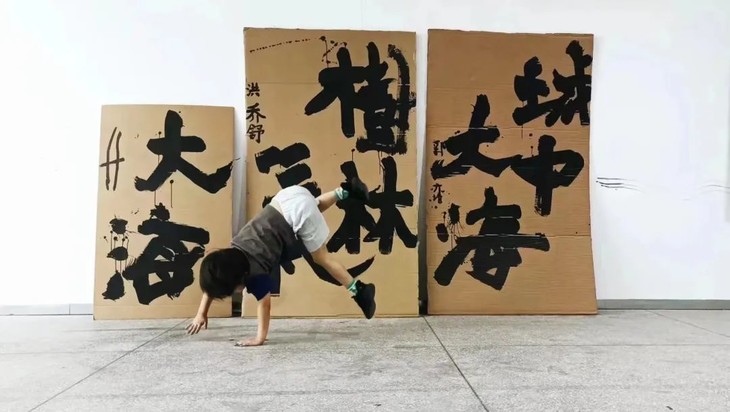 大海
樹林
洪乔舒
城中
大海